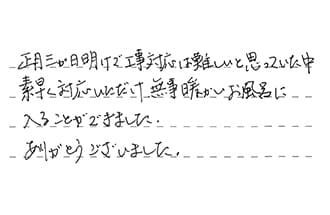 正月三が日明けで工事対応は難しいと思っていた中
素早く対応いただけ無事暖かいお風呂に
入ることができました.
ありがとうございました.